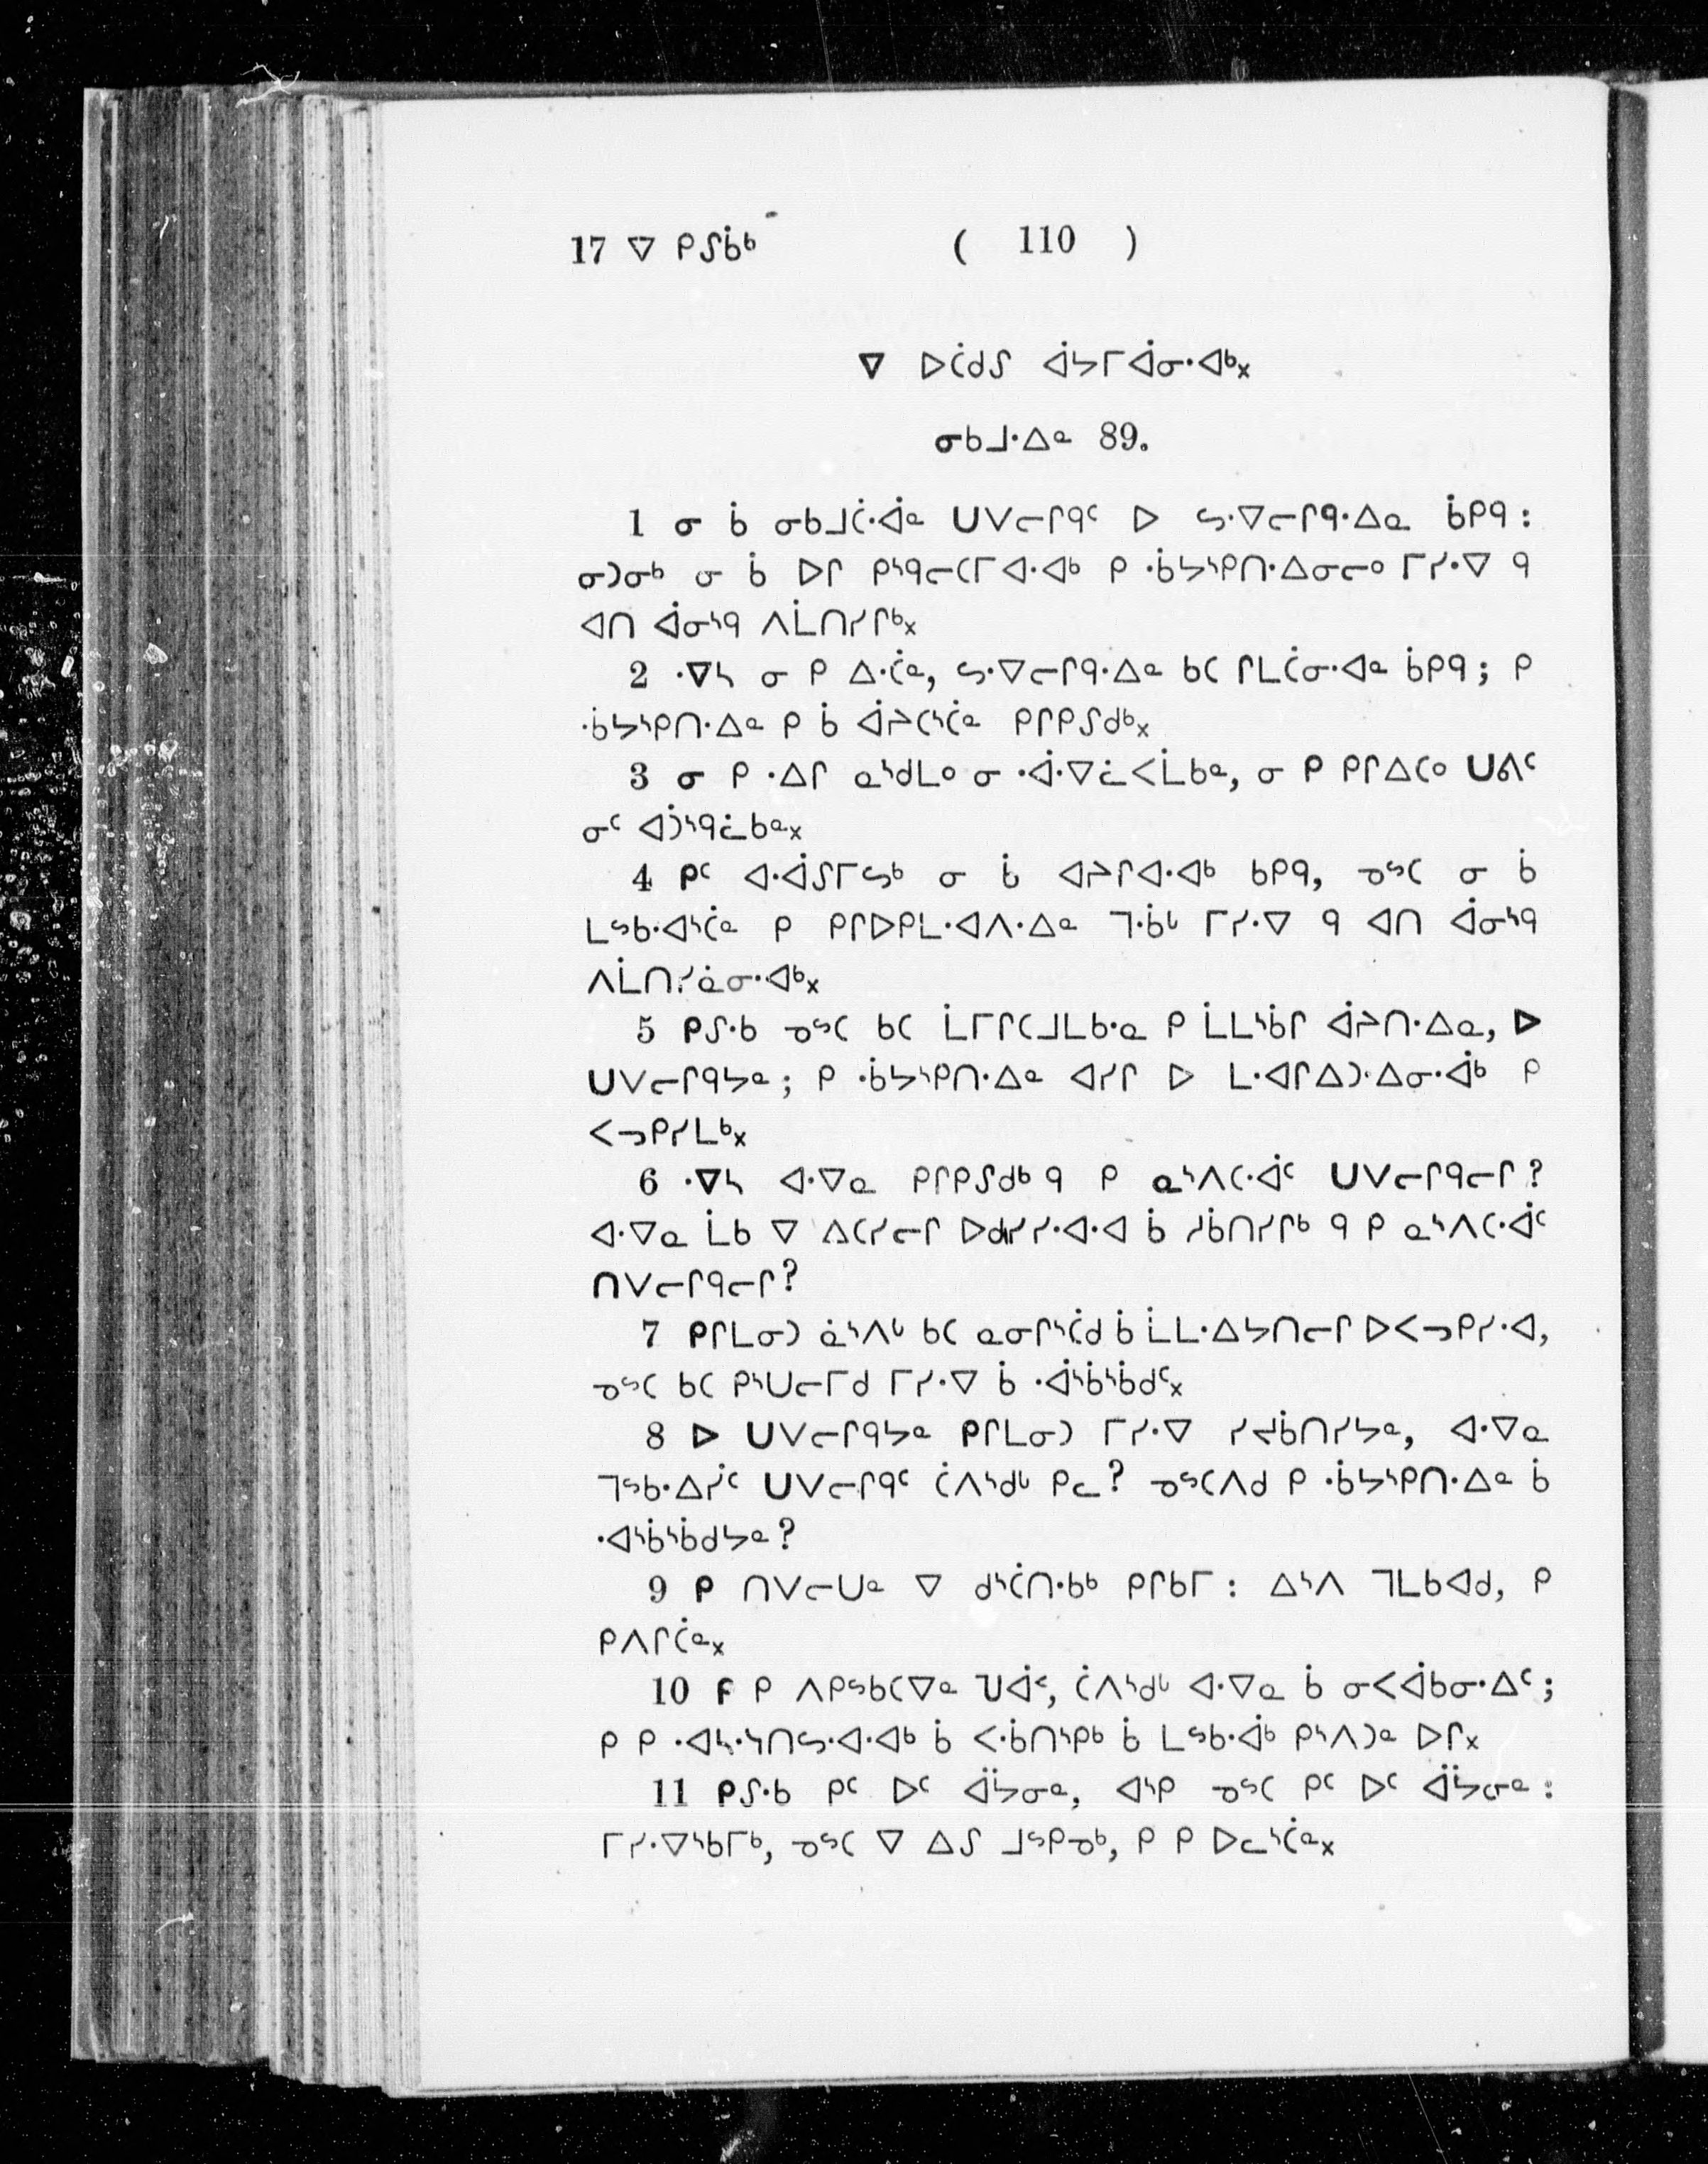 17 ᐁ ᑭᔑᑳᒃ ( 110 )
ᐁ ᐅᑖᑯᔑ ᐋᔭᒥᐋᓂᐧᐊᒃ᙮
ᓂᑲᒧᐧᐃᓐ 89.
1 ᓂ ᑳ ᓂᑲᒧᑖᐧᐋᓐ ᑌᐯᓕᒋᑫᑦ ᐅ ᓴᐧᐁᓕᒋᑫᐧᐃᓐ ᑳᑭᑫ :
ᓂᑐᓂᒃ ᓂ ᑳ ᐅᒋ ᑭᔅᑫᓕᑕᒥᐊᐧᐊᒃ ᑭ ᐧᑳᔭᔅᑭᑎᐧᐃᓂᓕᐤ ᒥᓯᐧᐁ ᑫ
ᐊᑎ ᐋᓂᔅᑫ ᐱᒫᑎᓯᒋᒃ᙮
2 ᐧᐁᓴ ᓂ ᑭ ᐃᐧᑖᓐ, ᓴᐧᐁᓕᒋᑫᐧᐃᓐ ᑲᑕ ᒋᒪᑖᓂᐧᐊᓐ ᑳᑭᑫ ; ᑭ
ᐧᑳᔭᔅᑭᑎᐧᐃᓐ ᑭ ᑳ ᐋᔨᑕᔅᑖᓐ ᑭᒋᑭᔑᑯᒃ᙮
3 ᓂ ᑭ ᐧᐃᒋ ᓇᔅᑯᒪᐤ ᓂ ᐧᐋᐧᐁᓈᐸᒫᑲᓐ, ᓂ ᑭ ᑭᒋᐃᑕᐤ ᑌᕕᑦ
ᓂᑦ ᐊᑑᔅᑫᓛᑲᓐ᙮
4 ᑭᑦ ᐊᐧᐋᔑᒥᓴᒃ ᓂ ᑳ ᐊᔨᒋᐊᐧᐊᒃ ᑲᑭᑫ, ᓀᔥᑕ ᓂ ᑳ
ᒪᔥᑲᐧᐊᔅᑖᓐ ᑭ ᑭᒋᐅᑭᒪᐧᐊᐱᐧᐃᓐ ᒣᐧᑳᒡ ᒥᓯᐧᐁ ᑫ ᐊᑎ ᐋᓂᔅᑫ
ᐱᒫᑎᓯᓈᓂᐧᐊᒃ᙮
5 ᑭᔑᐧᑲ ᓀᔥᑕ ᑲᑕ ᒫᒥᒋᑕᒧᒪᑲᐧᓇ ᑭ ᒫᒪᔅᑳᒋ ᐋᔨᑎᐧᐃᓇ, ᐅ
ᑌᐯᓕᒋᑫᔭᓐ ; ᑭ ᐧᑳᔭᔅᑭᑎᐧᐃᓐ ᐊᓯᒋ ᐅ ᒪᐧᐊᒋᐃᑐᐧᐃᓂᐧᐋᒃ ᑭ
ᐸᓓᑭᓯᒪᒃ᙮
6 ᐧᐁᓴ ᐊᐧᐁᓇ ᑭᒋᑭᔑᑯᒃ ᑫ ᑭ ᓇᔅᐱᑕᐧᐋᑦ ᑌᐯᓕᒋᑫᓕᒋ ?
ᐊᐧᐁᓇ ᒫᑲ ᐁ ᐃᑕᓯᓕᒋ ᐅᑯᓯᓯᐧᐊᐧᐊ ᑳ ᓱᑳᑎᓯᒋᒃ ᑫ ᑭ ᓇᔅᐱᑕᐧᐋᑦ
ᑎᐯᓕᒋᑫᓕᒋ ?
7 ᑭᒋᒪᓂᑐ ᓈᔅᐱᒡ ᑲᑕ ᓇᓂᒋᔅᑖᑯ ᑳ ᒫᒪᐧᐃᔭᑎᓕᒋ ᐅᐸᓓᑭᓯᐧᐊ,
ᓀᔥᑕ ᑲᑕ ᑭᔅᑌᓕᒥᑯ ᒥᓯᐧᐁ ᑳ ᐧᐋᔅᑳᔅᑳᑯᑦ᙮
8 ᐅ ᑌᐯᓕᒋᑫᔭᓐ ᑭᒋᒪᓂᑐ ᒥᓯᐧᐁ ᓯᔪᑳᑎᓯᔭᓐ, ᐊᐧᐁᓇ
ᒣᔥᑲᐧᐃᓰᑦ ᑌᐯᓕᒋᑫᑦ ᑖᐱᔅᑯᒡ ᑭᓚ ? ᓀᔥᑕᐱᑯ ᑭ ᐧᑳᔭᔅᑭᑎᐧᐃᓐ ᑳ
ᐧᐊᔅᑳᔅᑳᑯᔭᓐ ?
9 ᑭ ᑎᐯᓕᑌᓐ ᐁ ᑯᔅᑖᑎᐧᑲᒃ ᑭᒋᑲᒥ : ᐃᔅᐱ ᒣᒪᑲᐊᑯ, ᑭ
ᑭᐱᒋᑖᓐ᙮
10 ᑭ ᑭ ᐱᑭᔥᑲᑕᐁᓐ ᒉᐋᑉ, ᑖᐱᔅᑯᒡ ᐊᐧᐁᓇ ᑳ ᓂᐸᐋᑲᓂᐧᐃᑦ ;
ᑭ ᑭ ᐧᐊᓴᐧᔅᑎᓴᐧᐊᐧᐊᒃ ᑳ ᐸᐧᑳᑎᔅᑭᒃ ᑳ ᒪᔥᑲᐧᐋᒃ ᑭᔅᐱᑐᓐ ᐅᒋ᙮
11 ᑭᔑᐧᑲ ᑭᑦ ᐅᑦ ᐋᔮᓂᓐ, ᐊᔅᑭ ᓀᔥᑕ ᑭᑦ ᐅᑦ ᐋᔮᓂᓐ :
ᒥᓯᐧᐁᔅᑲᒥᒃ, ᓀᔥᑕ ᐁ ᐃᔑ ᒧᔥᑭᓀᒃ, ᑭ ᑭ ᐅᓚᔅᑖᓐ᙮